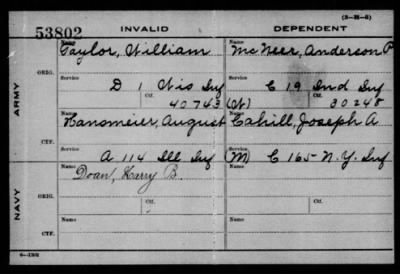 (3-M-5)
53802 INVALID DEPENDENT
Name Name
Taylor, William McNeer, Anderson P
ARMY
ORIG.
Service Service
D 1 Wis Inf C 19 Ind Inf
Ctf. Ctf.
40743 (W) 30248
Name Name
Hansmeier, August Cahill, Joseph A
CTF.
Service Service
A 114 Ill Inf (M) C 165 N.Y. Inf
NAVY
Name Name
Doan, Harry B.
ORIG.
Service Service
Ctf. Ctf.
Name Name
CTF.